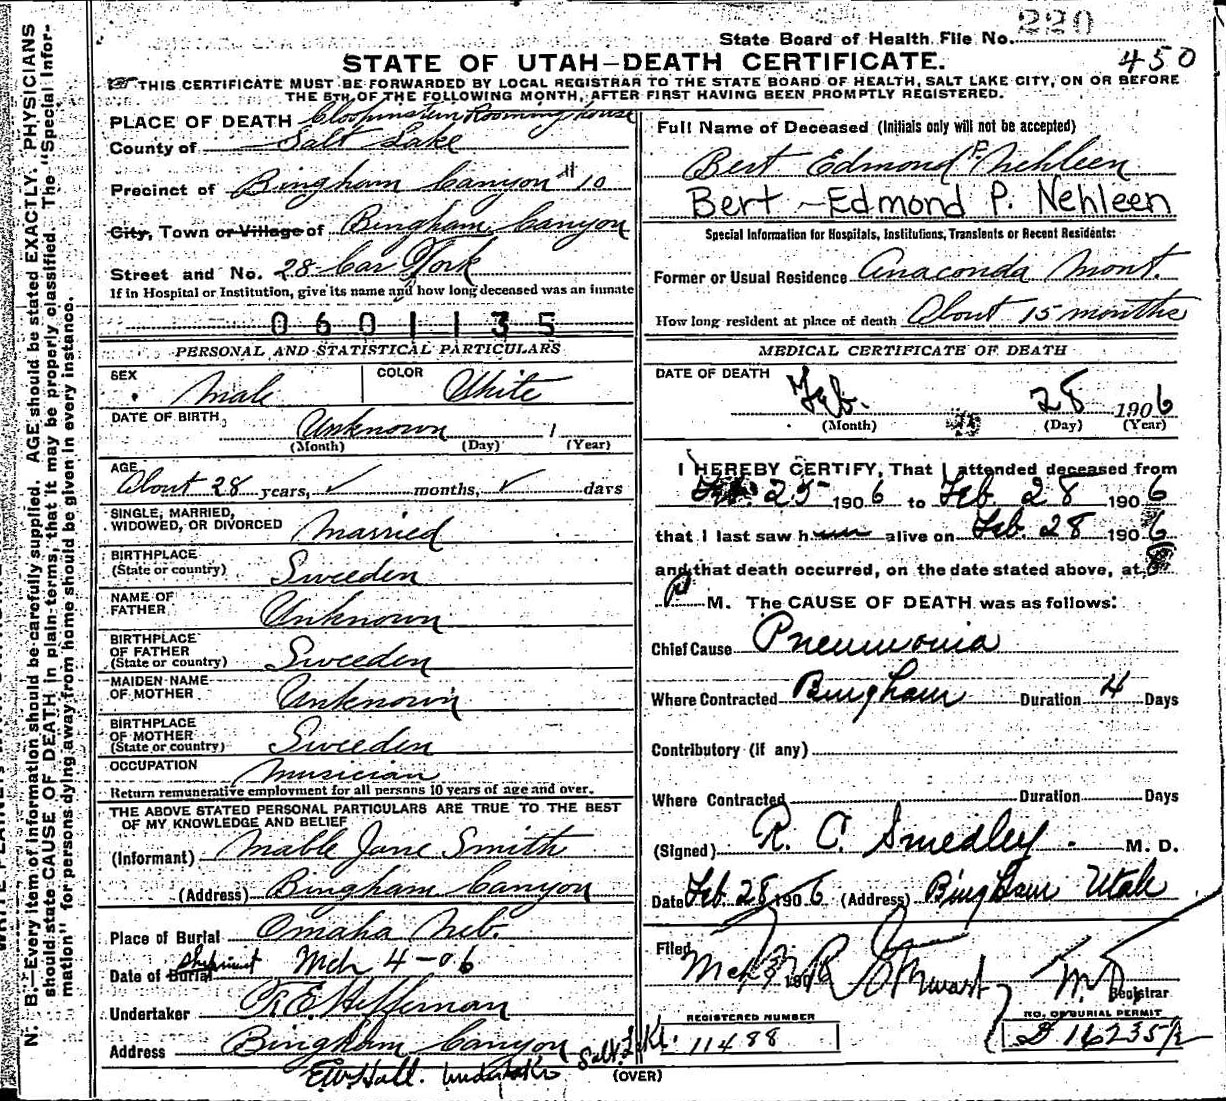 220
State Board of Health File No.
450
STATE OF UTAH—DEATH CERTIFICATE.
THIS CERTIFICATE MUST BE FORWARDED BY LOCAL REGISTRAR TO THE STATE BOARD OF HEALTH, SALT LAKE CITY, ON OR BEFORE
THE 5TH OF THE FOLLOWING MONTH, AFTER FIRST HAVING BEEN PROMPTLY REGISTERED.
N. B.—Every item of information should be carefully supplied. AGE should be stated EXACTLY. PHYSICIANS
should state CAUSE OF DEATH in plain terms, that it may be properly classified. The "Special Infor-
mation" for persons dying away from home should be given in every instance.
PLACE OF DEATH Rooming house
County of Salt Lake
Precinct of Bingham Canyon # 10
City, Town or Village of Bingham Canyon
Street and No. 28 Car Fork
If in Hospital or Institution, give its name and how long deceased was an inmate
0601135
PERSONAL AND STATISTICAL PARTICULARS
SEX Male COLOR White
DATE OF BIRTH Unknown 1
(Month) (Day) (Year)
AGE
About 28 years, ✓ months, ✓ days
SINGLE, MARRIED,
WIDOWED, OR DIVORCED Married
BIRTHPLACE
(State or country) Sweeden
NAME OF
FATHER Unknown
BIRTHPLACE
OF FATHER
(State or country) Sweeden
MAIDEN NAME
OF MOTHER Unknown
BIRTHPLACE
OF MOTHER
(State or country) Sweeden
OCCUPATION Musician
Return remunerative employment for all persons 10 years of age and over.
THE ABOVE STATED PERSONAL PARTICULARS ARE TRUE TO THE BEST
OF MY KNOWLEDGE AND BELIEF
(Informant) Mable Jane Smith
(Address) Bingham Canyon
Place of Burial Omaha Neb.
Date of Burial Shipment Mch 4-06
Undertaker E. Heffernan
Address Bingham Canyon
E.W. Hall. undertaker Salt L.
(OVER)
Full Name of Deceased (Initials only will not be accepted)
Bert Edmond P. Nehleen
Bert - Edmond P. Nehleen
Special Information for Hospitals, Institutions, Transients or Recent Residents:
Former or Usual Residence Anaconda Mont.
How long resident at place of death About 15 months
MEDICAL CERTIFICATE OF DEATH
DATE OF DEATH
Feb. 28 1906
(Month) (Day) (Year)
I HEREBY CERTIFY, That I attended deceased from
Feb. 25 1906 to Feb 28 1906
that I last saw him alive on Feb. 28 1906
and that death occurred, on the date stated above, at 8
P M. The CAUSE OF DEATH was as follows:
Chief Cause Pneumonia
Where Contracted Bingham Duration 4 Days
Contributory (if any)
Where Contracted Duration Days
(Signed) R. C. Smedley M. D.
Date Feb 28 1906 (Address) Bingham Utah
Filed
Mch 190 R Stewart M.D.
Registrar
REGISTERED NUMBER
11488
NO. OF BURIAL PERMIT
D 16235½